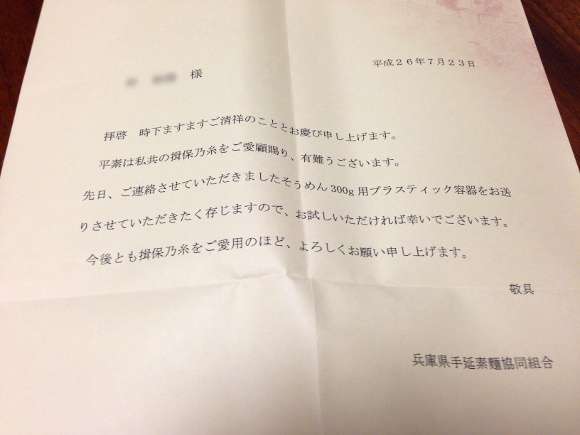 平成26年7月23日
様
拝啓 時下ますますご清祥のこととお慶び申し上げます。
平素は私共の揖保乃糸をご愛顧賜り、有難うございます。
先日、ご連絡させていただきましたそうめん300g用プラスティック容器をお送
りさせていただきたく存じますので、お試しいただければ幸いでございます。
今後とも揖保乃糸をご愛用のほど、よろしくお願い申し上げます。
敬具
兵庫県手延素麵協同組合